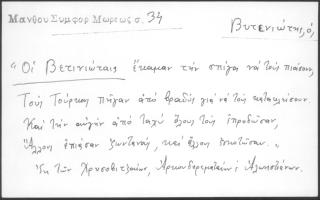 Μανθου Συμφορ Μωρεως σ. 34
Βυτενιώτης, ὁ,
"Οἱ Βετινιώταις ἔκαμαν τὴν σπίγα νὰ τοὺς πιάσουν,
Τοὺς Τούρκους πῆγαν ἀπὸ βραδὺς γιὰ νὰ τοὺς
Καὶ τὴν αὐγὴν ἀπὸ ταχὺ ὅλους τοὺς ἐπροδῶσαν,
Ἄλλους ἐπιάσαν ζωντανούς, καὶ ἄλλους ἐσκοτῶσαν."
Ἐκ τῶν Χρυσοβιτζαίων, Ἀρκουδορεματαίων, Ἀλωνιστάνων.